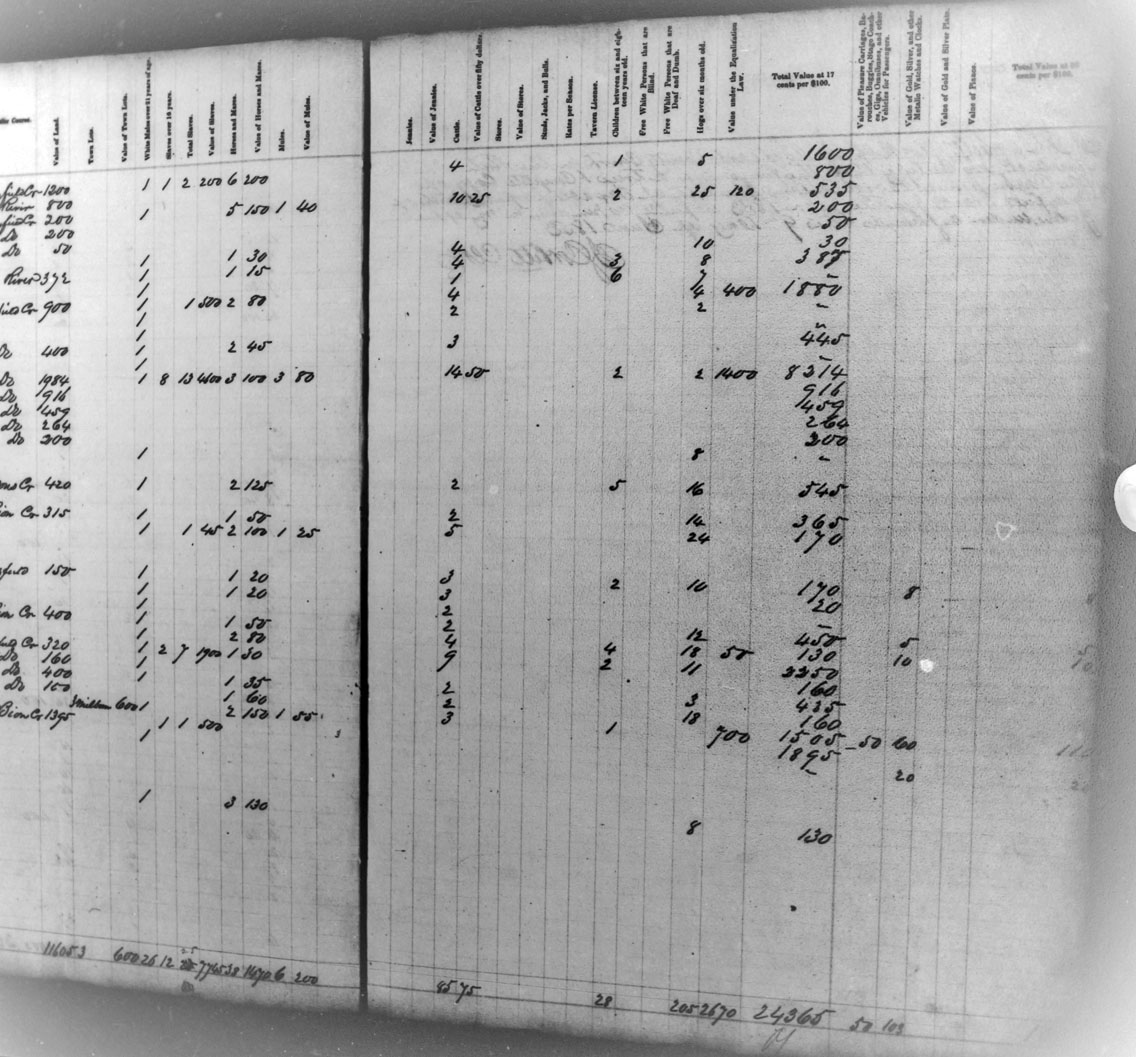 Value of Land. Town Lots. Value of Town Lots. White Males over 21 years of age. Slaves over 16 years. Total Slaves. Value of Slaves. Horses and Mares. Value of Horses and Mares. Mules. Value of Mules. Jennies. Value of Jennies. Cattle. Value of Cattle over fifty dollars. Stores. Value of Stores. Studs, Jacks, and Bulls. Rates per Season. Tavern License. Children between six and eighteen years old. Free White Persons that are Blind. Free White Persons that are Deaf and Dumb. Hogs over six months old. Value under the Equalization Law. Total Value at 17 cents per $100. Value of Pleasure Carriages, Barouches, Buggies, Stage Coaches, Gigs, Omnibuses, and other Vehicles for Passengers. Value of Gold, Silver, and other Metallic Watches and Clocks. Value of Gold and Silver Plate. Value of Pianos. Total Value at cents per $100.
Cr 1200 1 1 2 200 6 200 4 1 5 1600
River 800 800
Cr 200 1 5 150 1 40 10 25 2 25 120 535
Do 200 200
Do 50 50
1 1 30 4 10 30
River 372 1 1 15 4 3 8 387
1 1 6 7 –
Cr 900 1 1 500 2 80 4 4 400 1880
1 2 2 –
1 –
Do 400 1 2 45 3 445
1 –
Do 1984 1 8 13 4600 3 100 3 80 14 50 2 2 1400 8214
Do 916 916
Do 459 459
Do 264 264
Do 200 200
1 8 –
Cr 420 1 2 125 2 5 16 545
Cr 315 1 1 50 2 14 365
1 1 45 2 100 1 25 5 24 170
150 1 1 20 3 2 10 170 8
1 1 20 3 20
1 2 –
Cr 400 1 1 50 2 12 450 5
1 2 80 4 4 18 130 10
Cr 320 1 2 7 1900 1 30 9 2 11 2250
Do 160 160
Do 400 1 1 35 2 3 435
Do 160 160
600 1 1 60 2 18 1505 50 60
Cr 1395 1 1 500 2 150 1 55 3 1 700 1895
1 – 20
1 3 130 8 130
11605 3 600 26 12 25 7745 38 1670 6 200 85 75 28 205 2670 24365 50 103